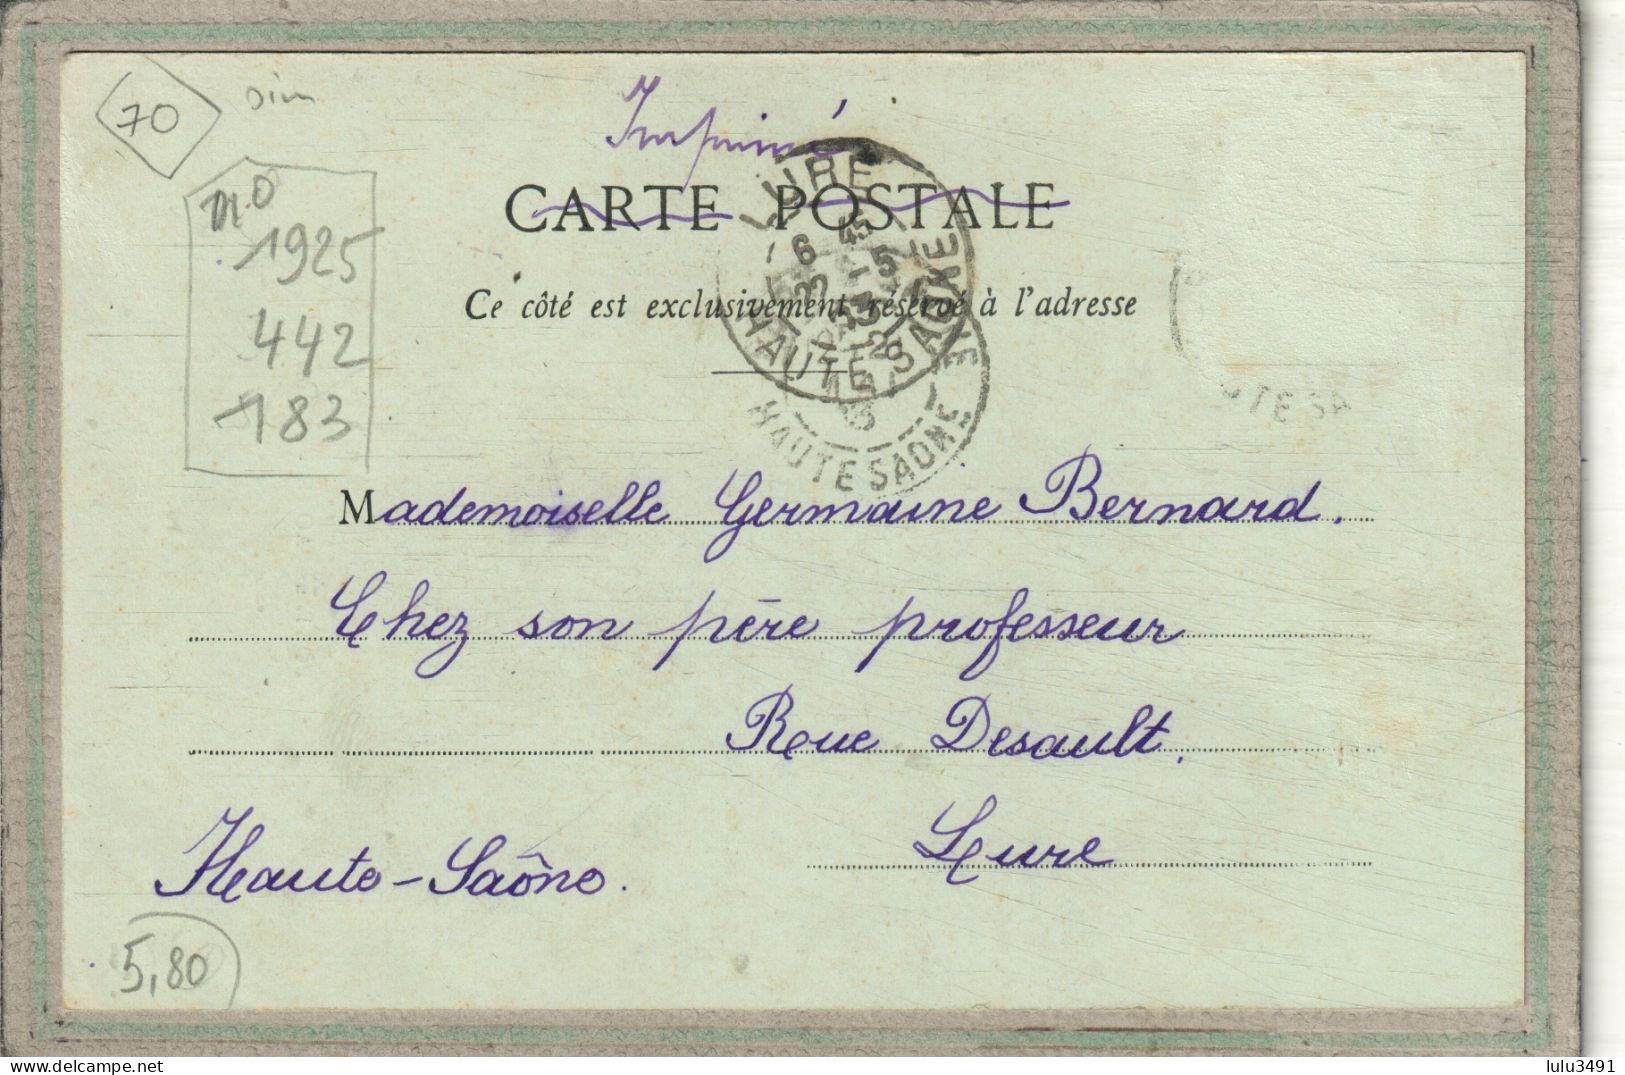 70
Imprimé
CARTE POSTALE
LURE
6 45
HAUTE SAONE
HAUTE SAONE
no
1925
442
183
Ce côté est exclusivement réservé à l'adresse
Mademoiselle Germaine Bernard.
Chez son père professeur
Rue Desault.
Lure
Haute-Saône.
5,80
delcampe.net
lulu3491